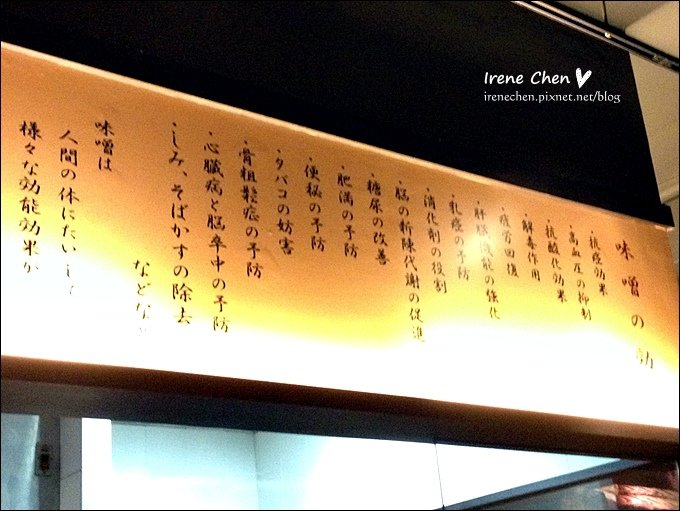 Irene Chen
irenechen.pixnet.net/blog
味噌の効
・抗癌効果
・高血圧の抑制
・抗酸化効果
・解毒作用
・疲労回復
・肝臓機能の強化
・乳癌の予防
・消化剤の役割
・脳の新陳代謝の促進
・糖尿の改善
・肥満の予防
・便秘の予防
・タバコの妨害
・骨粗鬆症の予防
・心臓病と脳卒中の予防
・しみ、そばかすの除去
などなど
味噌は
人間の体にたいして
様々な効能効果が